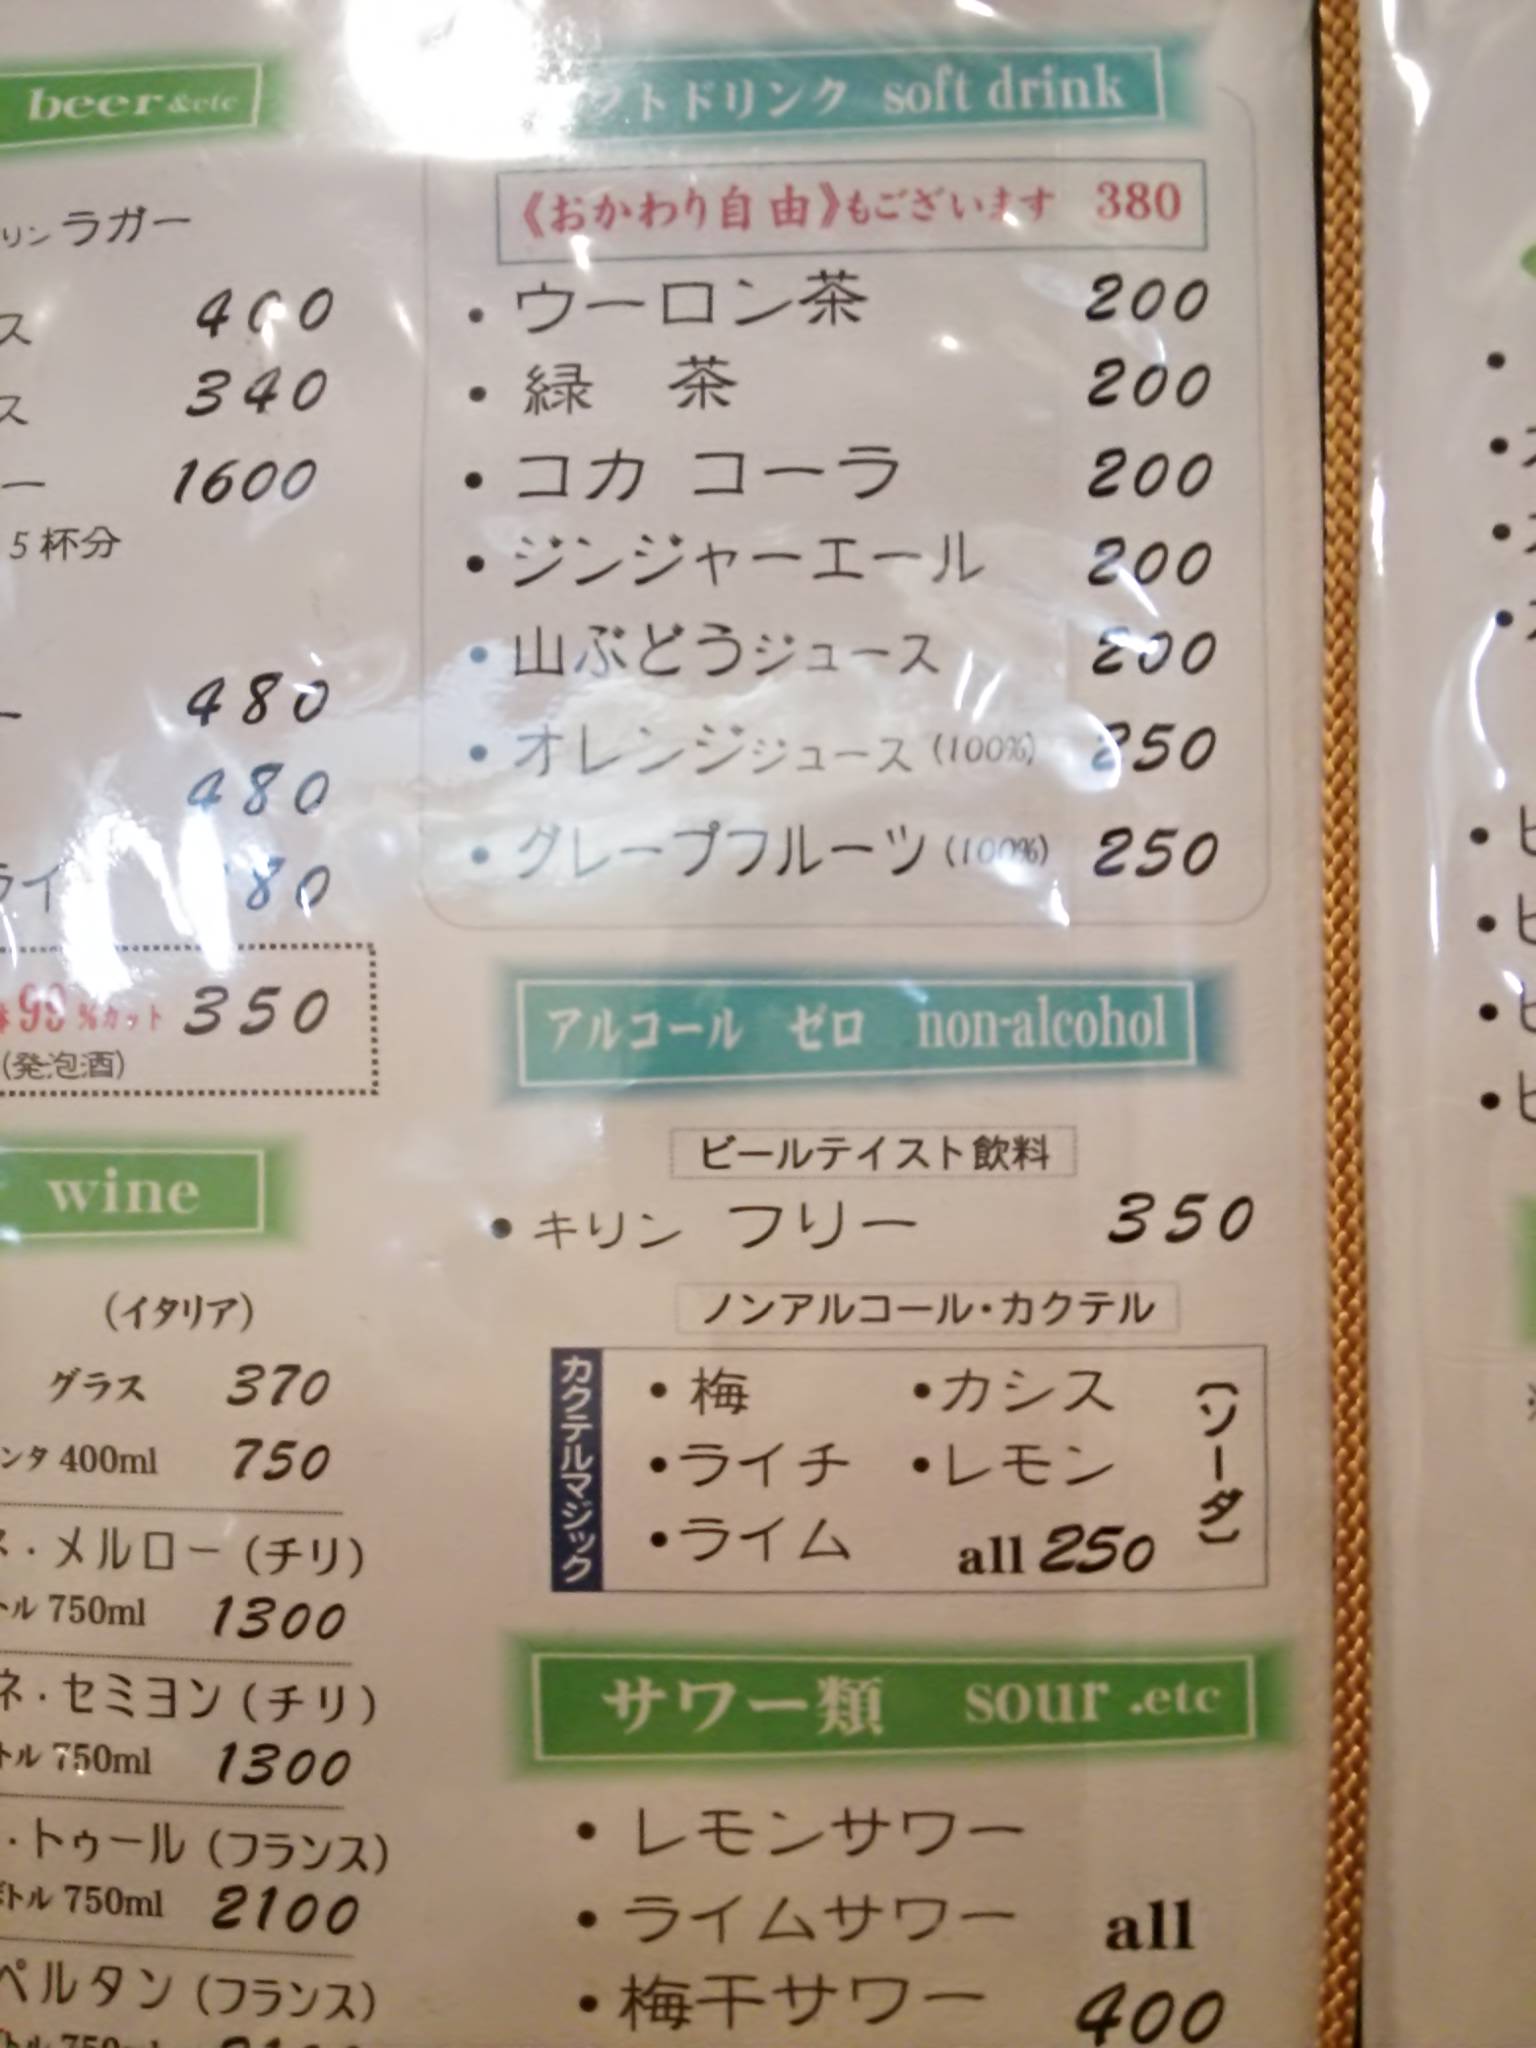 beer &etc
リン ラガー
ス 400
ス 340
ー 1600
5杯分
ー 480
480
ライ 80
99%カット 350
(発泡酒)
wine
(イタリア)
グラス 370
ンタ 400ml 750
・メルロー (チリ)
トル 750ml 1300
ネ・セミヨン (チリ)
トル 750ml 1300
・トゥール (フランス)
ボトル 750ml 2100
ペルタン (フランス)
フトドリンク soft drink
《おかわり自由》もございます 380
・ウーロン茶 200
・緑 茶 200
・コカ コーラ 200
・ジンジャーエール 200
・山ぶどうジュース 200
・オレンジジュース (100%) 250
・グレープフルーツ (100%) 250
アルコール ゼロ non-alcohol
ビールテイスト飲料
・キリン フリー 350
ノンアルコール・カクテル
カクテルマジック
・梅 ・カシス
・ライチ ・レモン
・ライム all 250
〔ソーダ〕
サワー類 sour .etc
・レモンサワー
・ライムサワー all
・梅干サワー 400